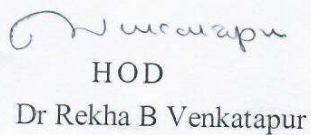 HOD
Dr Rekha B Venkatapur